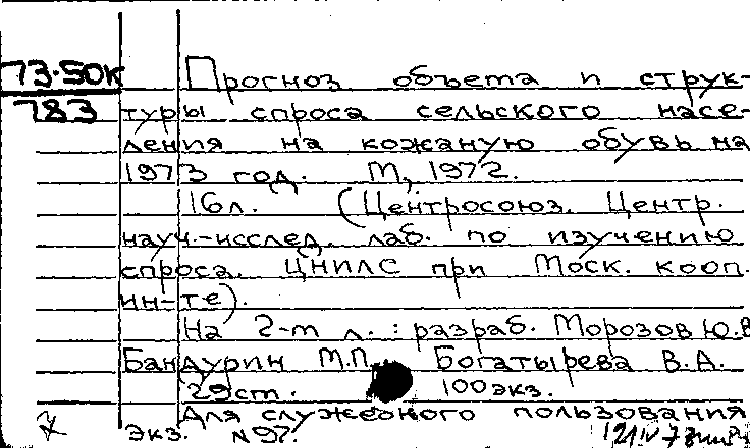 73-50к
783
Прогноз объема и струк-
туры спроса сельского насе-
ления на кожаную обувь на
1973 год. М, 1972.
16л. (Центросоюз. Центр.
науч.-исслед. лаб. по изучению
спроса. ЦНИЛС при Моск. кооп.
ин-те).
На 2-т л.: разраб. Морозов Ю.В
Бандурин М.П. Богатырева В.А.
29ст. 100экз.
Для служебного пользования
Экз. N97.